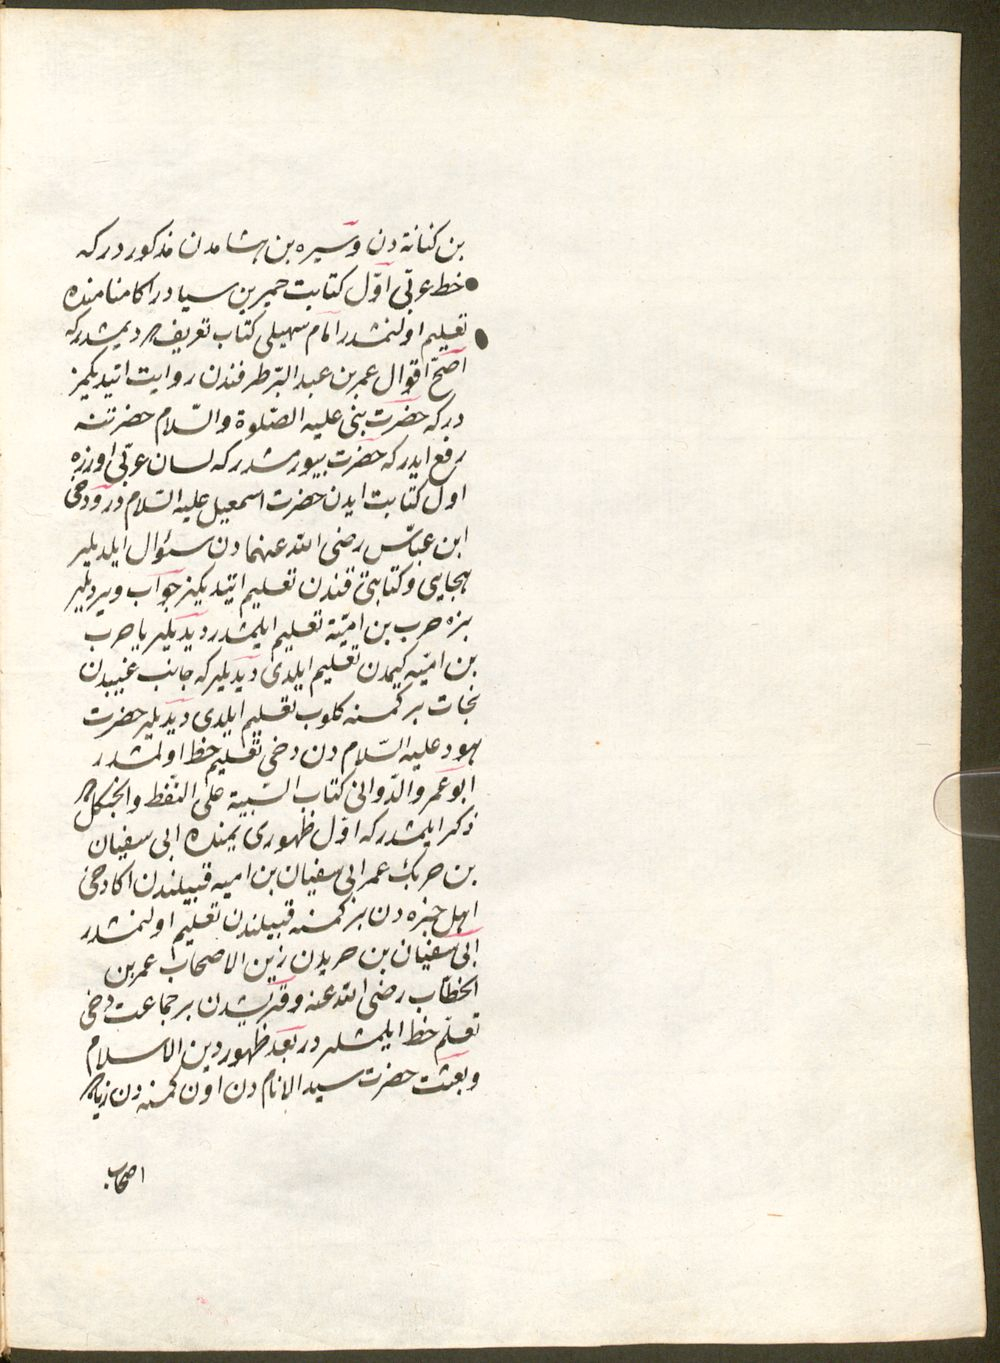 بن كنانة دن وسيره بن هشامدن مذكور دركه
خط عربى اوّل كتابت حمير بن سيا در اكا منامنده
تعليم اولنمشدر امام سهيلى كتاب تعريفده ديمشدركه
اصحّ اقوال عمر بن عبد البرّ طرفندن روايت اتيديكمز
دركه حضرت بنى عليه الصّلوة والسّلام حضرتنه
رفع ايدركه حضرت بيورمشدركه لسان عربى اوزره
اول كتابت ايدن حضرت اسمعيل عليه السّلام در ودخى
ابن عبّاس رضى الله عنهمادن سئوال ايلديلر
هجايى وكتابتى قندن تعليم ايتديكز جواب ويرديلر
بزه حرب بن اميّة تعليم ايلمشدر ديديلر يا حرب
بن اميّه كيمدن تعليم ايلدى ديديلركه جانب غيبدن
نجات بر كمنه كلوب تعليم ايلدى ديديلر حضرت
هود عليه السّلام دن دخى تعليم خط اولمشدر
ابو عمرو الدّوانى كتاب التّنبيه على النّقط والشكلده
ذكر ايلمشدركه اوّل ظهورى يمنده ابى سفيان
بن حربك عمر ابى سفيان بن اميه قبيلندن اكا دخى
اهل حيره دن بر كمنه قبيلندن تعليم اولنمشدر
ابى سفيان بن حربدن زين الاصحاب عمر بن
الخطّاب رضى الله عنه وقريشدن بر جماعت دخى
تعلّم خط ايلمشلر در بعد ظهور دين الاسلام
وبعثت حضرت سيد الانام دن اون كمنه دن زياده
اصحاب